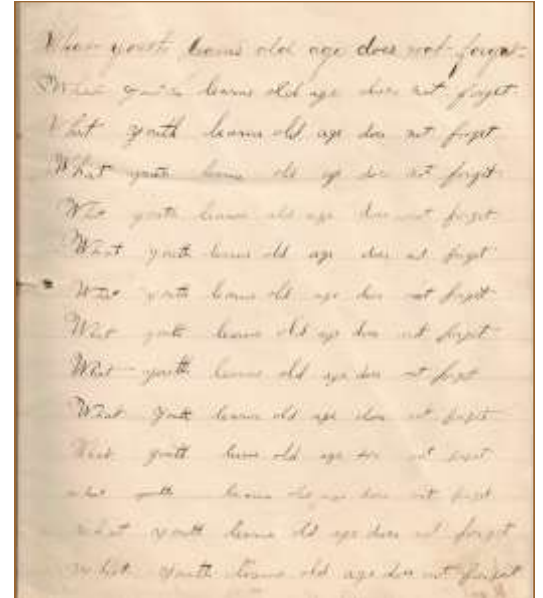 What youth learns old age does not forget.
What youth learns old age does not forget
What youth learns old age does not forget
What youth learns old age does not forget
What youth learns old age does not forget
What youth learns old age does not forget
What youth learns old age does not forget
What youth learns old age does not forget
What youth learns old age does not forget
What youth learns old age does not forget
What youth learns old age does not forget
what youth learns old age does not forget
what youth learns old age does not forget
what youth learns old age does not forget